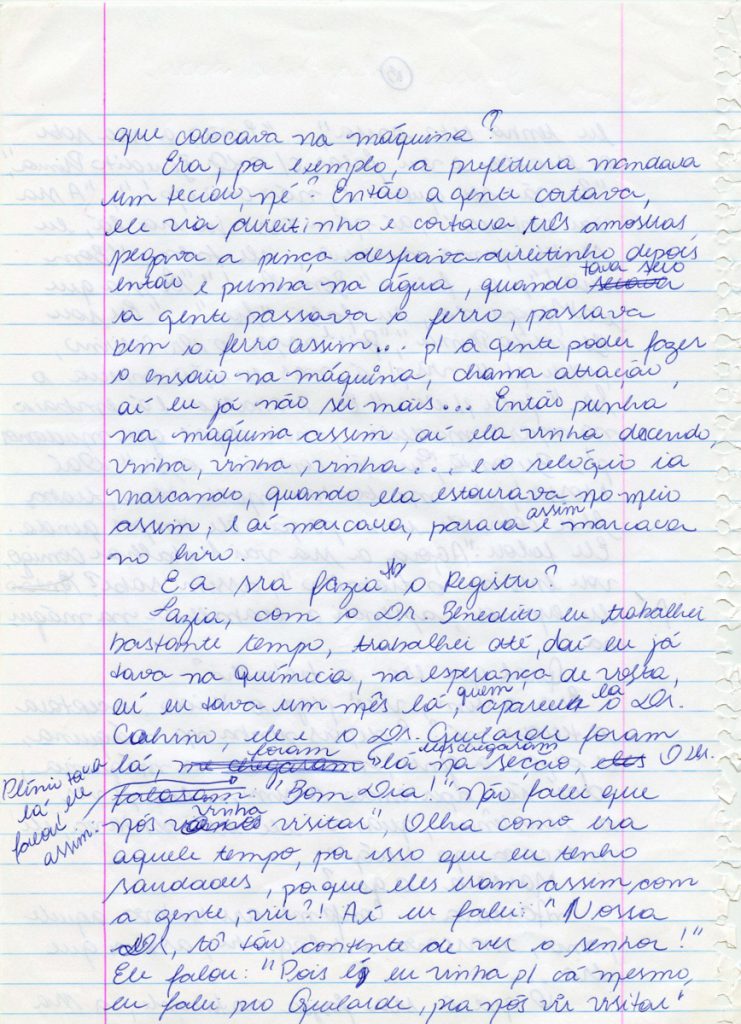 que colocava na máquina?
Era, por exemplo, a prefeitura mandava
um tecido, né? Então a gente cortava,
ele via direitinho e cortava três amostras,
pegava a pinça desfaiva direitinho depois
então e punha na água, quando tava seco
a gente passava o ferro, passava
bem o ferro assim... p/ a gente poder fazer
o ensaio na máquina, chama atração,
aí eu já não sei mais... Então punha
na máquina assim, aí ela vinha decendo,
vinha, vinha, vinha... e o relógio ia
marcando, quando ela estourava no meio
assim, e aí marcava, parava assim e marcava
no livro.
E a sra fazia o Registro?
Fazia, com o Dr. Benedito eu trabalhei
bastante tempo, trabalhei até, daí eu já
tava na química, na esperança de volta,
aí eu tava um mês lá, quem aparece lá o Dr.
ele e o Dr. foram
lá, foram lá eles chegaram na secção O Dr.
Plínio tava
lá eu
falou
assim:
"Bom Dia!" "Não falei que
nós vinha visitar", Olha como era
aquele tempo, por isso que eu tenho
saudades, porque eles eram assim com
a gente, viu?! Aí eu falei: "Nossa
Dr, tô tão contente de ver o senhor!"
Ele falou: "Pois é, eu vinha p/ cá mesmo,
eu falei pro, pra nós vir visitar"